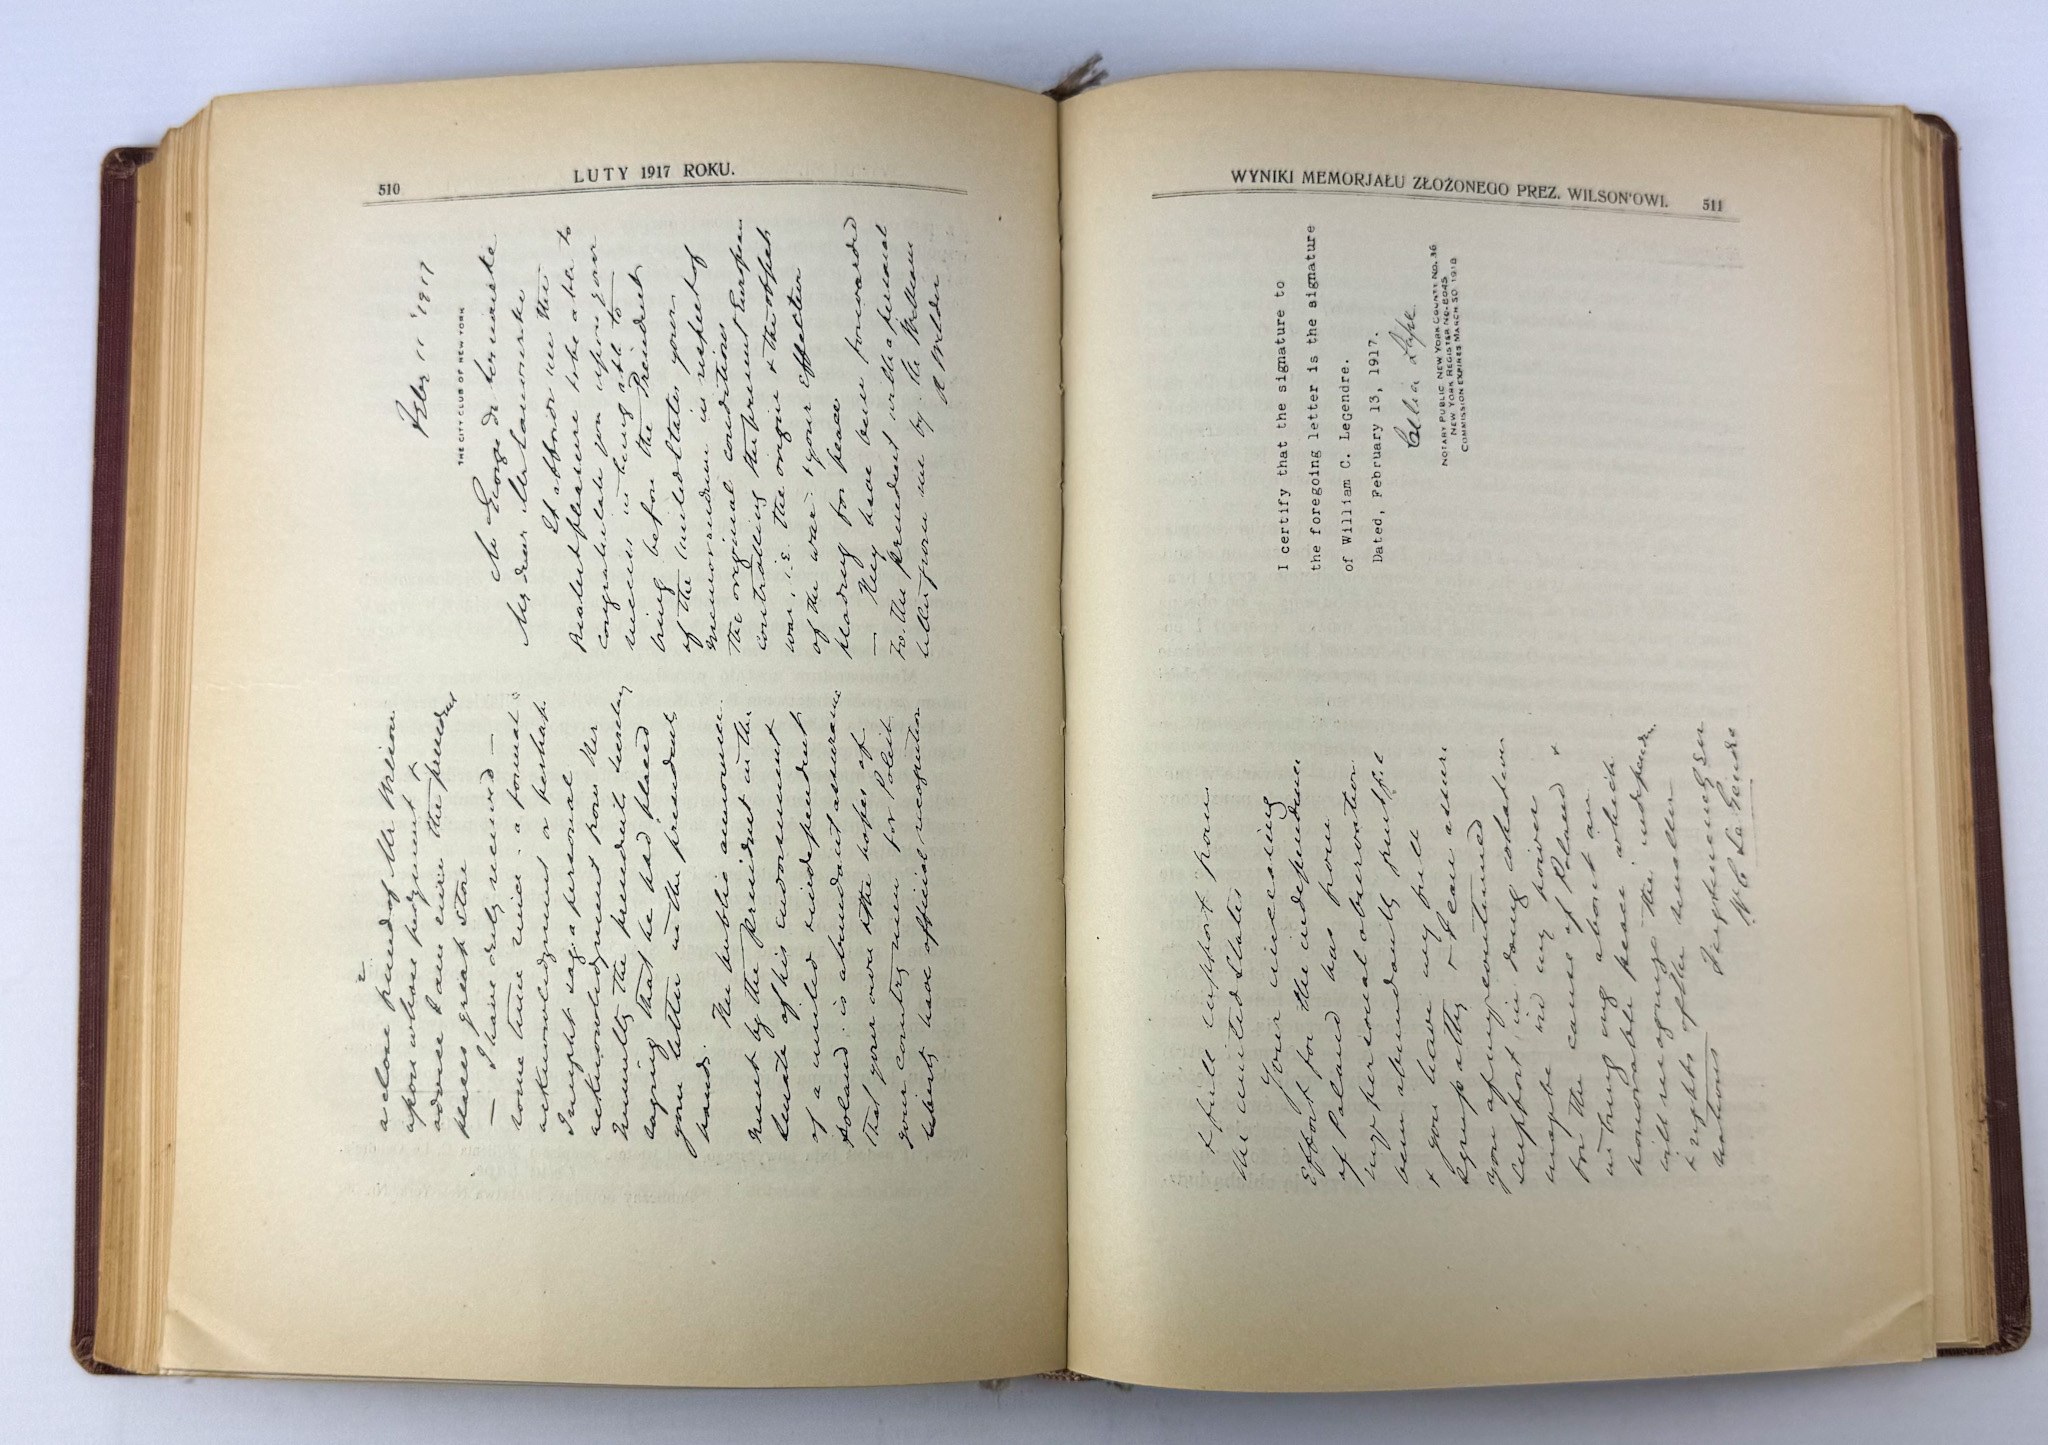 510
LUTY 1917 ROKU.
Febr 11 1917
THE CITY CLUB OF NEW YORK
Mr George de
My dear
It affords me the
greatest pleasure to be able to
congratulate you upon your
success in being able to
bring before the President
of the United States your
memorandum in respect of
the original conditions
controlling the present European
war, i.e. the origin & the effect
of the war & your effective
pleading for peace
— They have been forwarded
to the President with a personal
letter from me by the
a close friend of Mr Wilson
upon whose judgment &
advice I am sure the president
places great store
— I have duly received —
some time since a formal
acknowledgment or perhaps
I might say a personal
acknowledgment from the
the president's Secretary
saying that he had placed
your letter in the president's
hands.
The public announce-
ment by the President in the
Senate of his endorsement
of a united independent
Poland is abundant assurance
that your own & the hopes of
your countrymen for Polish
liberty have official recognition
WYNIKI MEMORJAŁU ZŁOŻONEGO PREZ. WILSON'OWI. 511
& full support from
the United States
Your unceasing
effort for the independence
of Poland has from
my personal observation
been abundantly fruitful
& you have my full
sympathy & I can assure
you of my continued
support in doing whatever
may be in my power
for the cause of Poland &
in bring ing about an
honorable peace which
will recognize the
& rights of the smaller
nations
I certify that the signature to
the foregoing letter is the signature
of William C. LeGendre.
Dated, February 13, 1917.
NOTARY PUBLIC NEW YORK COUNTY NO. 36
NEW YORK REGISTER NO. 8045
COMMISSION EXPIRES MARCH 30 1918